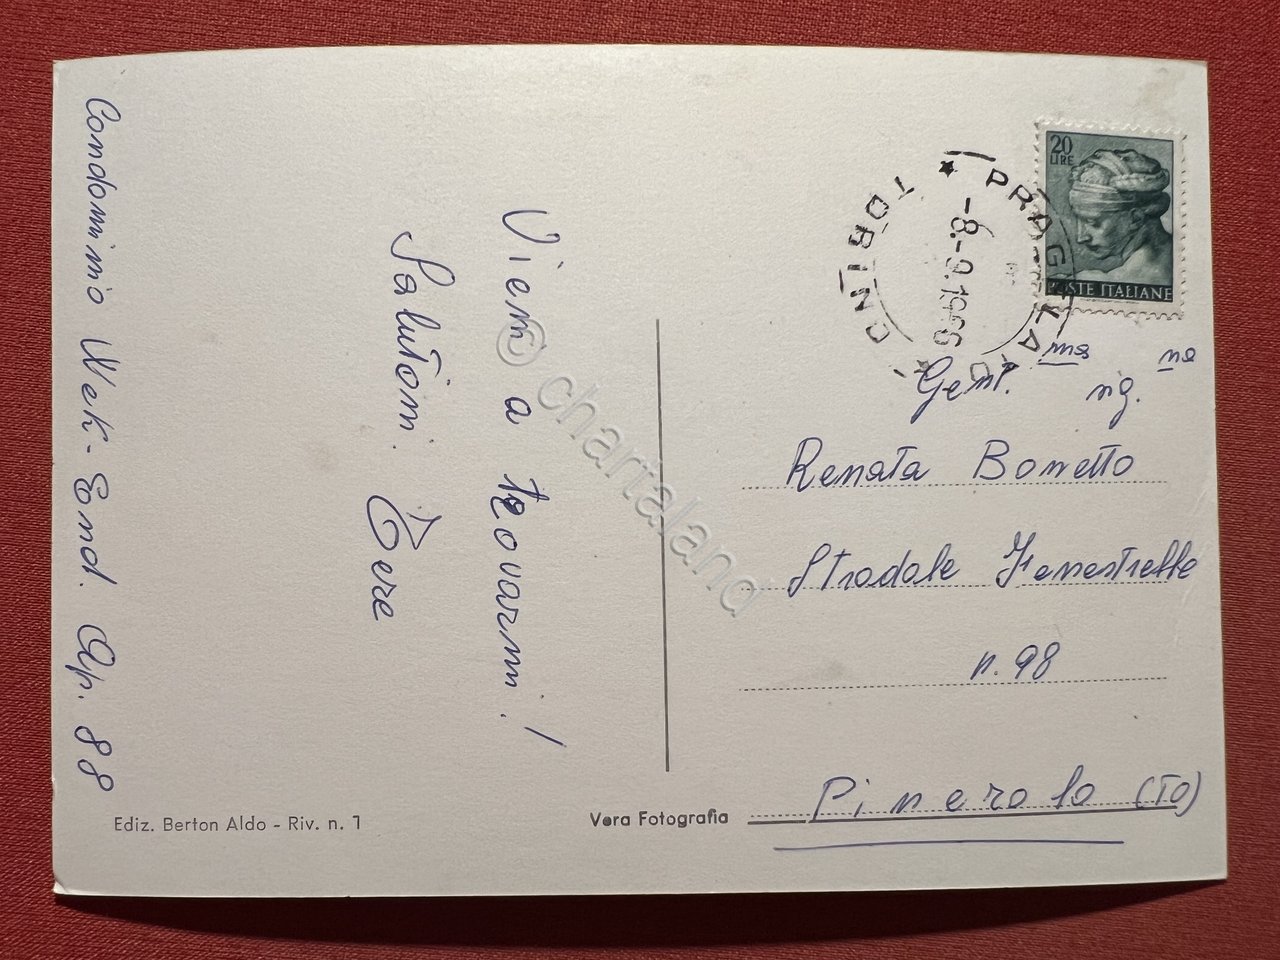 Condominio Wek-End. Ap. 88
Viemi a trovarmi!
SaluToni.
Tere
Ediz. Berton Aldo - Riv. n. 1
Vera Fotografia
TORINO * PRAGELATO *
-8.-9.1966
20
LIRE
POSTE ITALIANE
Gent.ma sig.na
RenaTa Bonetto
Stradale Fenestrelle
n. 98
Pinerolo (TO)
© chartaland